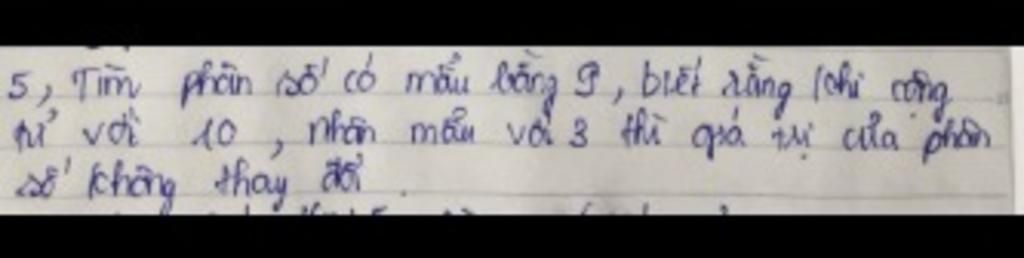 5, Tìm phân số có mẫu bằng 9, biết rằng khi cộng
tử với 10, nhân mẫu với 3 thì giá trị của phân
số không thay đổi.